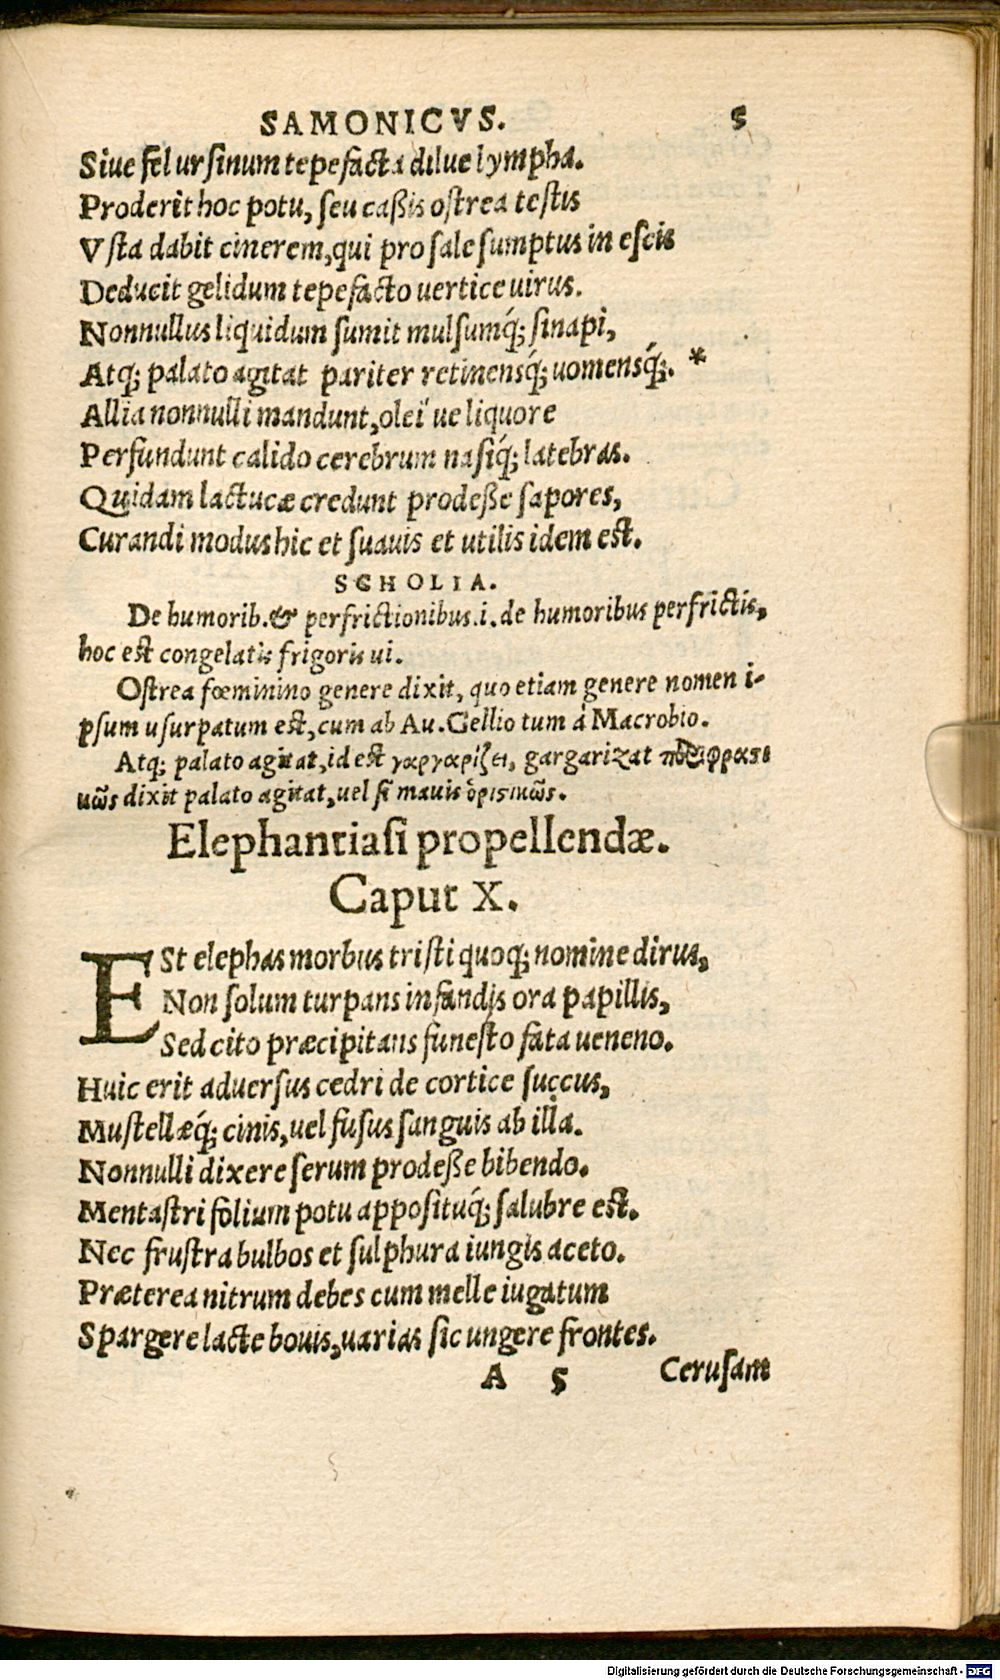 SAMONICVS. 5
Siue fel ursinum tepefacta dilue lympha.
Proderit hoc potu, seu caßis ostrea testis
Vsta dabit cinerem, qui pro sale sumptus in escis
Deducit gelidum tepefacto uertice uirus.
Nonnullus liquidum sumit mulsumq́; sinapi,
Atq; palato agitat pariter retinensq́; uomensq́;. *
Allia nonnulli mandunt, oleï ue liquore
Perfundunt calido cerebrum nasiq́; latebras.
Quidam lactucæ credunt prodeße sapores,
Curandi modus hic et suauis et utilis idem est.
SCHOLIA.
De humorib. & perfrictionibus .i. de humoribus perfrictis,
hoc est congelatis frigoris ui.
Ostrea fœminino genere dixit, quo etiam genere nomen i-
psum usurpatum est, cum ab Au. Gellio tum à Macrobio.
Atq; palato agitat, id est γαργαρίζει, gargarizat περιφραστι
κῶς dixit palato agitat, uel si mauis ὁριστικῶς.
Elephantiasi propellendæ.
Caput X.
ESt elephas morbus tristi quoq; nomine dirus,
Non solum turpans infandis ora papillis,
Sed cito præcipitans funesto fata ueneno.
Huic erit aduersus cedri de cortice succus,
Mustellæq́; cinis, uel fusus sanguis ab illa.
Nonnulli dixere serum prodeße bibendo.
Mentastri folium potu appositуq́; salubre est.
Nec frustra bulbos et sulphura iungis aceto.
Præterea nitrum debes cum melle iugatum
Spargere lacte bouis, uarias sic ungere frontes.
A 5 Cerusam
Digitalisierung gefördert durch die Deutsche Forschungsgemeinschaft - DFG